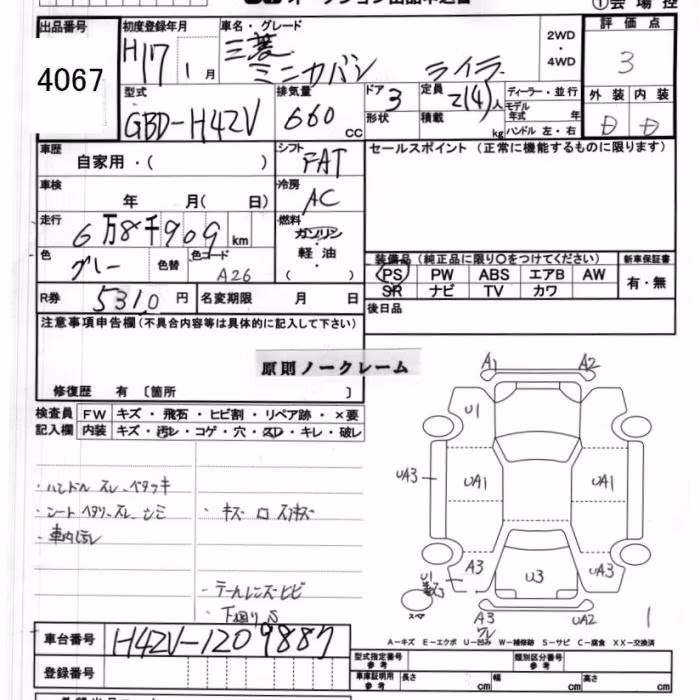 ①会場控
出品番号
4067
初度登録年月
H17 1月
車名・グレード
三菱
ミニカバン ライラ
2WD
・
4WD
評価点
3
型式
GBD-H42V
排気量
660 cc
ドア 3
形状
定員 2(4)人
積載 kg
ディーラー・並行
モデル
年式 年
ハンドル 左・右
外装 内装
D D
車歴
自家用・( )
シフト
FAT
セールスポイント(正常に機能するものに限ります)
車検
年 月( 日)
冷房
AC
走行
6万8千909km
燃料
ガソリン
軽油
( )
色
グレー
色替
色コード
A26
装備品(純正品に限り○をつけてください)
新車保証書
PS PW ABS エアB AW
SR ナビ TV カワ
有・無
R券 5310円
名変期限 月 日
後日品
注意事項申告欄(不具合内容等は具体的に記入して下さい)
原則ノークレーム
修復歴 有〔箇所 〕
検査員 FW キズ・飛石・ヒビ割・リペア跡・×要
記入欄 内装 キズ・汚レ・コゲ・穴・スレ・キレ・破レ
・ハンドル スレ、ベタツキ
・シート ヘタリ、スレ、シミ
・車内汚レ
・キズ
・テールレンズヒビ
・下廻りS
A1 A2
U1
UA3 UA1 UA1
A3 U3 UA3
U1
スペア
A3 UA2
ワレ
1
A-キズ E-エクボ U-凹み W-補修跡 S-サビ C-腐食 XX-交換済
車台番号 H42V-1209887
登録番号
型式指定番号
参考
類別区分番号
参考
車庫証明用
参考
長さ cm
幅 cm
高さ cm